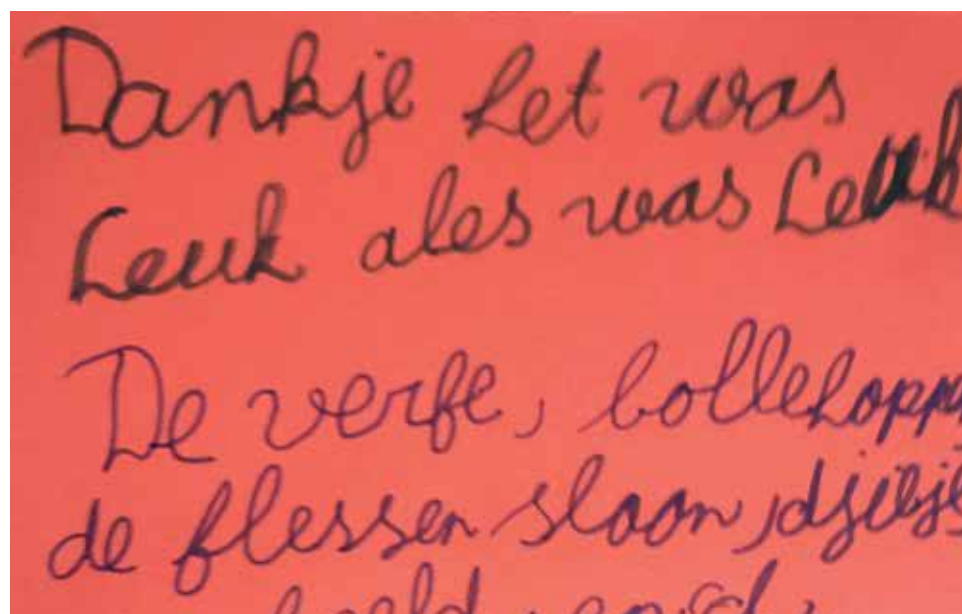 Dankje het was
Leuk ales was Leuk
De verfe, bollehoppe
de flessen slaan,